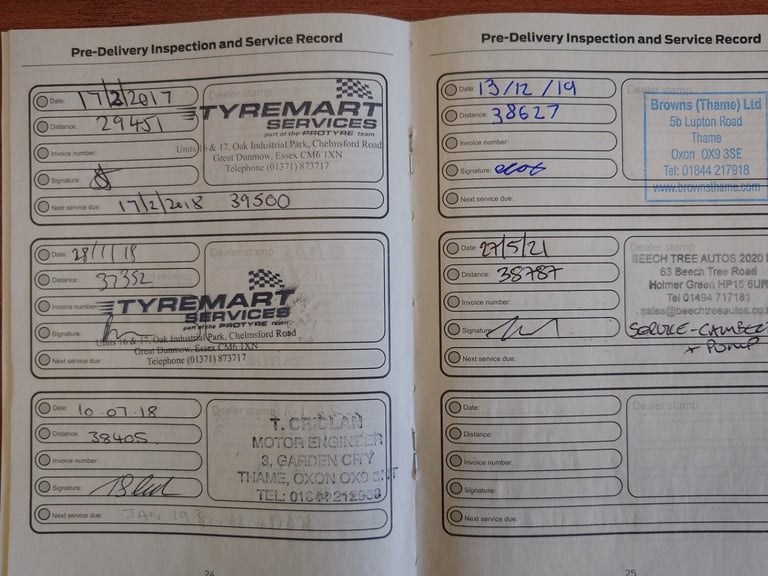 Pre-Delivery Inspection and Service Record
Date: 17/2/2017
Dealer stamp
Distance: 29451
Invoice number:
Signature:
TYREMART
SERVICES
part of the PROTYRE team
Units 16 & 17, Oak Industrial Park, Chelmsford Road
Great Dunmow, Essex CM6 1XN
Telephone (01371) 873717
Next service due: 17/2/2018 39500
Date: 28/1/18
Dealer stamp
Distance: 37352
Invoice number:
Signature:
TYREMART
SERVICES
part of the PROTYRE team
Units 16 & 17, Oak Industrial Park, Chelmsford Road
Great Dunmow, Essex CM6 1XN
Telephone (01371) 873717
Next service due:
Date: 10.07.18
Dealer stamp
Distance: 38405.
Invoice number:
Signature:
T. CRIDLAN
MOTOR ENGINEER
3, GARDEN CITY
THAME, OXON OX9
TEL: 01844
Next service due: JAN 19
24
Pre-Delivery Inspection and Service Record
Date: 13/12/19
Dealer stamp
Distance: 38627
Invoice number:
Signature:
Browns (Thame) Ltd
5b Lupton Road
Thame
Oxon OX9 3SE
Tel: 01844 217918
www.brownsthame.com
Next service due:
Date: 27/5/21
Dealer stamp
Distance: 38787
Invoice number:
Signature:
BEECH TREE AUTOS 2020
63 Beech Tree Road
Holmer Green HP15 6UR
Tel 01494 717181
sales@beechtreeautos.co.
SERVICE-CAMBE
+ PUMP
Next service due:
Date:
Dealer stamp
Distance:
Invoice number:
Signature:
Next service due:
25